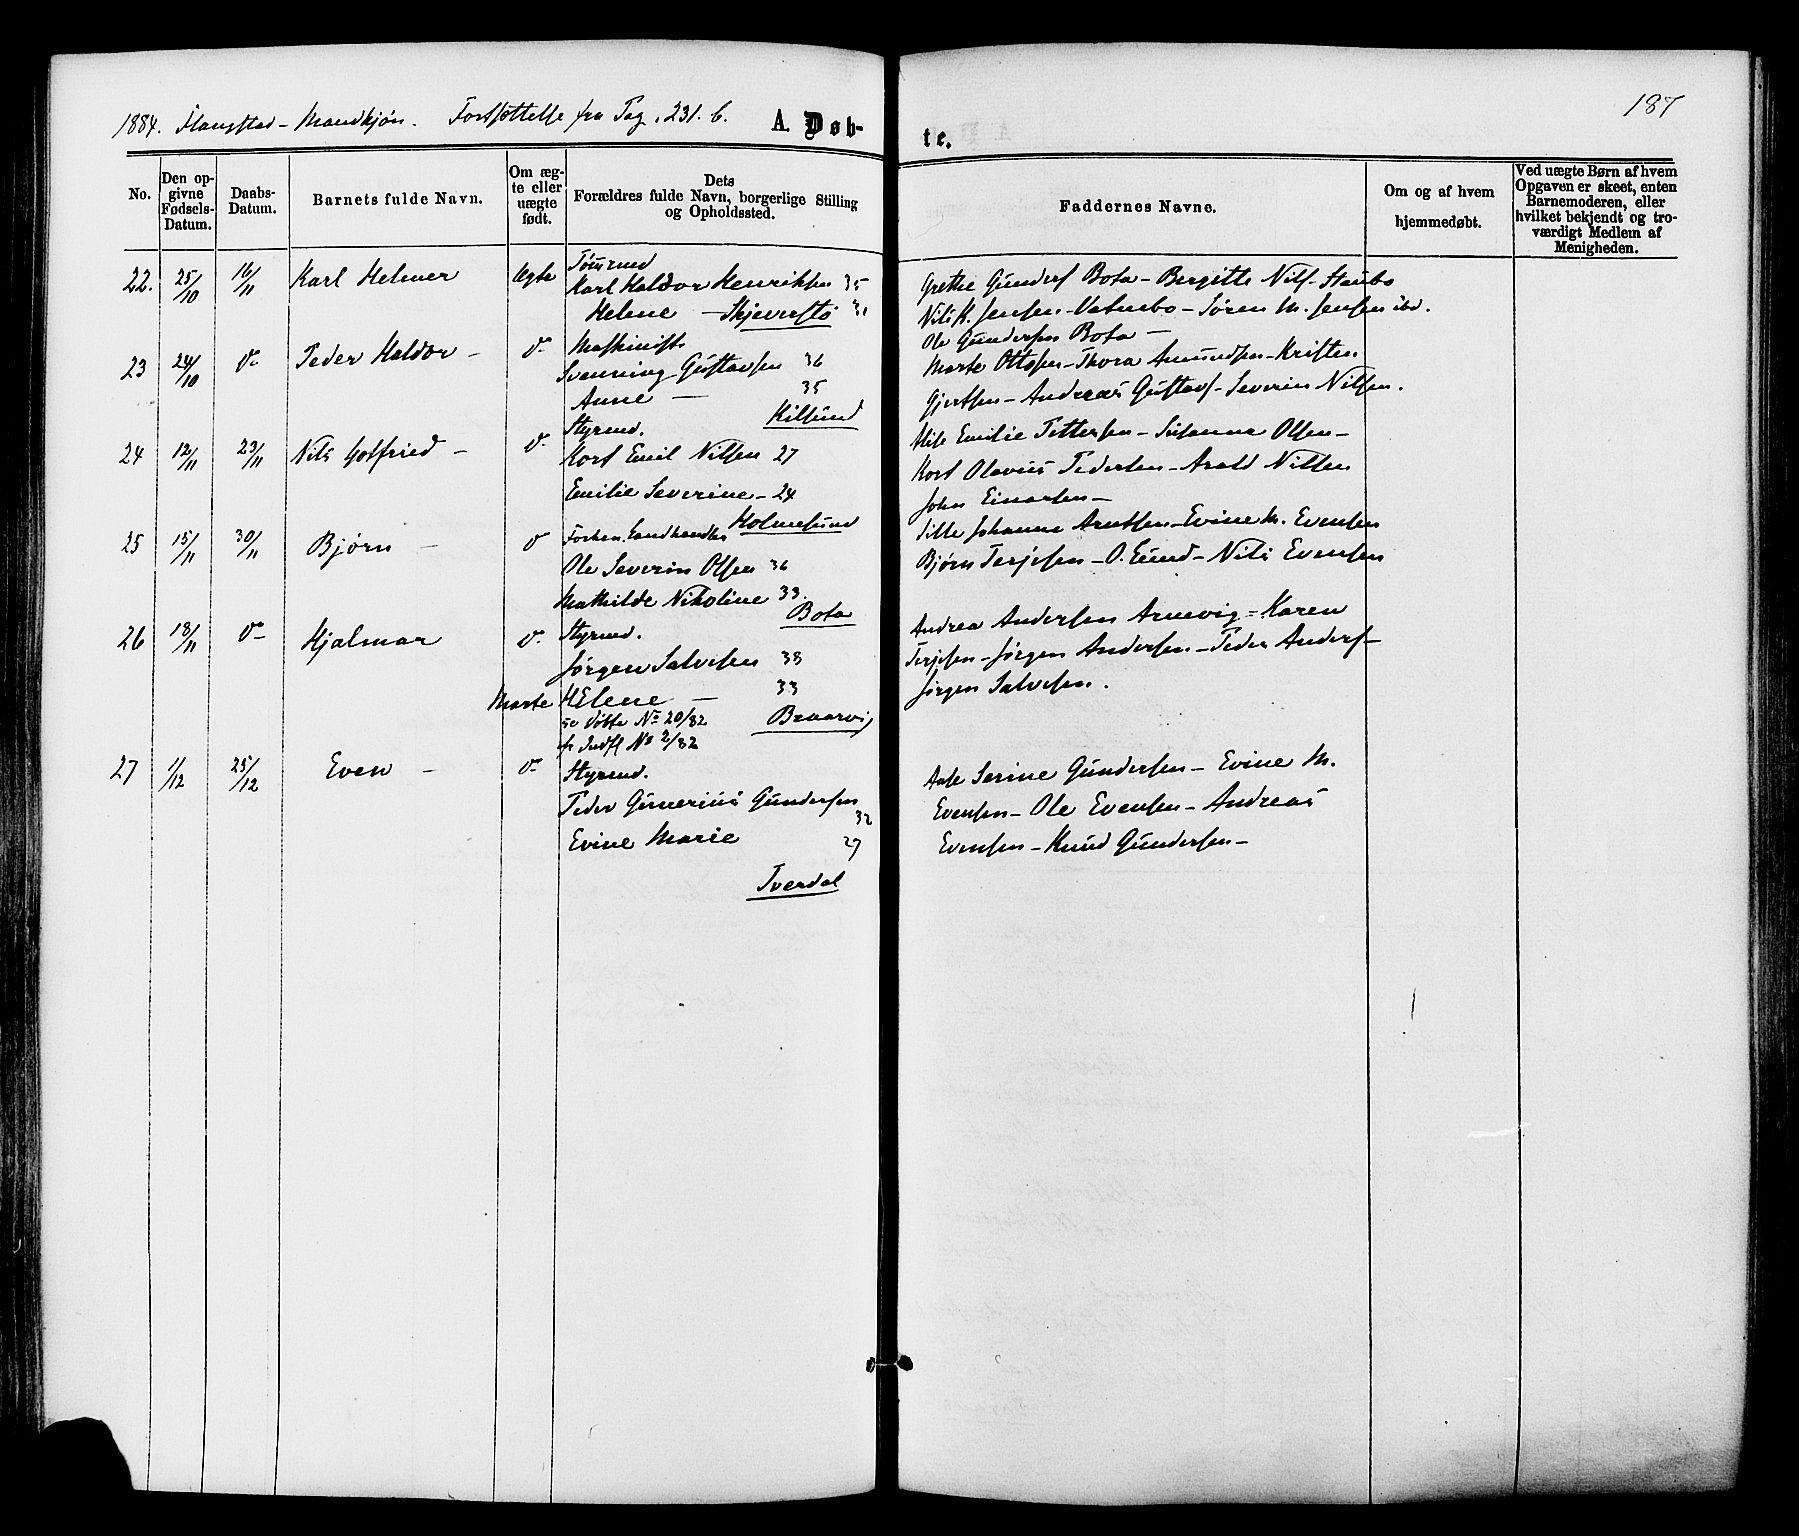 1884. Flangstad - Mandkjøn. Fortsættelse fra Pag. 231. b.
A. Døb-
te.
187
No.
Den op-
givne
Fødsels-
Datum.
Daabs-
Datum.
Barnets fulde Navn.
Om æg-
te eller
uægte
født.
Dets
Forældres fulde Navn, borgerlige Stilling
og Opholdssted.
Faddernes Navne.
Om og af hvem
hjemmedøbt.
Ved uægte Børn af hvem
Opgaven er skeet, enten
Barnemoderen, eller
hvilket bekjendt og tro-
værdigt Medlem af
Menigheden.
22. 25/10 16/11 Karl Helmer Ægte Tømmd
Karl Haldor Henriksen 35
Helene - Skjevestø 31
Grethe Gunders Bota - Bergitte Nils - Staubo
Nils K. Jensen - Vatnebo - Søren M. Jensen ibd.
Ole Gundersen Bota -
23 24/10 v- Peder Haldor - v- Maskinist
Svenning Gustavsen 36
Anne - 35
Kilsund
Marte Ottosen - Thora Amundsen - Kristen
Gjertsen - Andreas Gustavs - Severin Nilsen.
24 12/11 23/11 Nils Gotfried - v- Styrmd.
Kort Emil Nilsen 27
Emilie Severine - 24
Holmesund
Emilie Pettersen - Susanna Olsen -
Kort Olavus Pedersen - Arald Nilsen
John Einarsen -
25 15/11 30/11 Bjørn - v Forhen. Landhandler
Ole Severin Olsen 36
Mathilde Nikoline 33.
Bota
Sille Johanne Arntsen - Evine M. Evensen
Bjørn Terjesen - O. Lund - Nils Evensen
26 18/11 v- Hjalmar v. Styrmd.
Jørgen Salvesen 38
Marte Helene - 33
se Døbte No 20/82 Braarvig
fr Indfl No 2/82
Andrea Andersen Arnevig - Karen
Terjesen - Jørgen Andersen - Peder Anders -
Jørgen Salvesen.
27 1/12 25/12 Even - v- Styrmd.
Peder Gunerius Gundersen
32
Evine Marie 27
Tverdal
Aase Serine Gundersen - Evine M.
Evensen - Ole Evensen - Andreas
Evensen - Knud Gundersen -